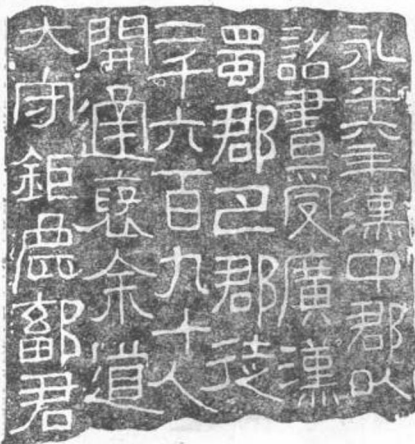 永平六年漢中郡以
詔書受廣漢
蜀郡巴郡徒
二千六百九十人
開通褒余道
大守鉅鹿鄐君